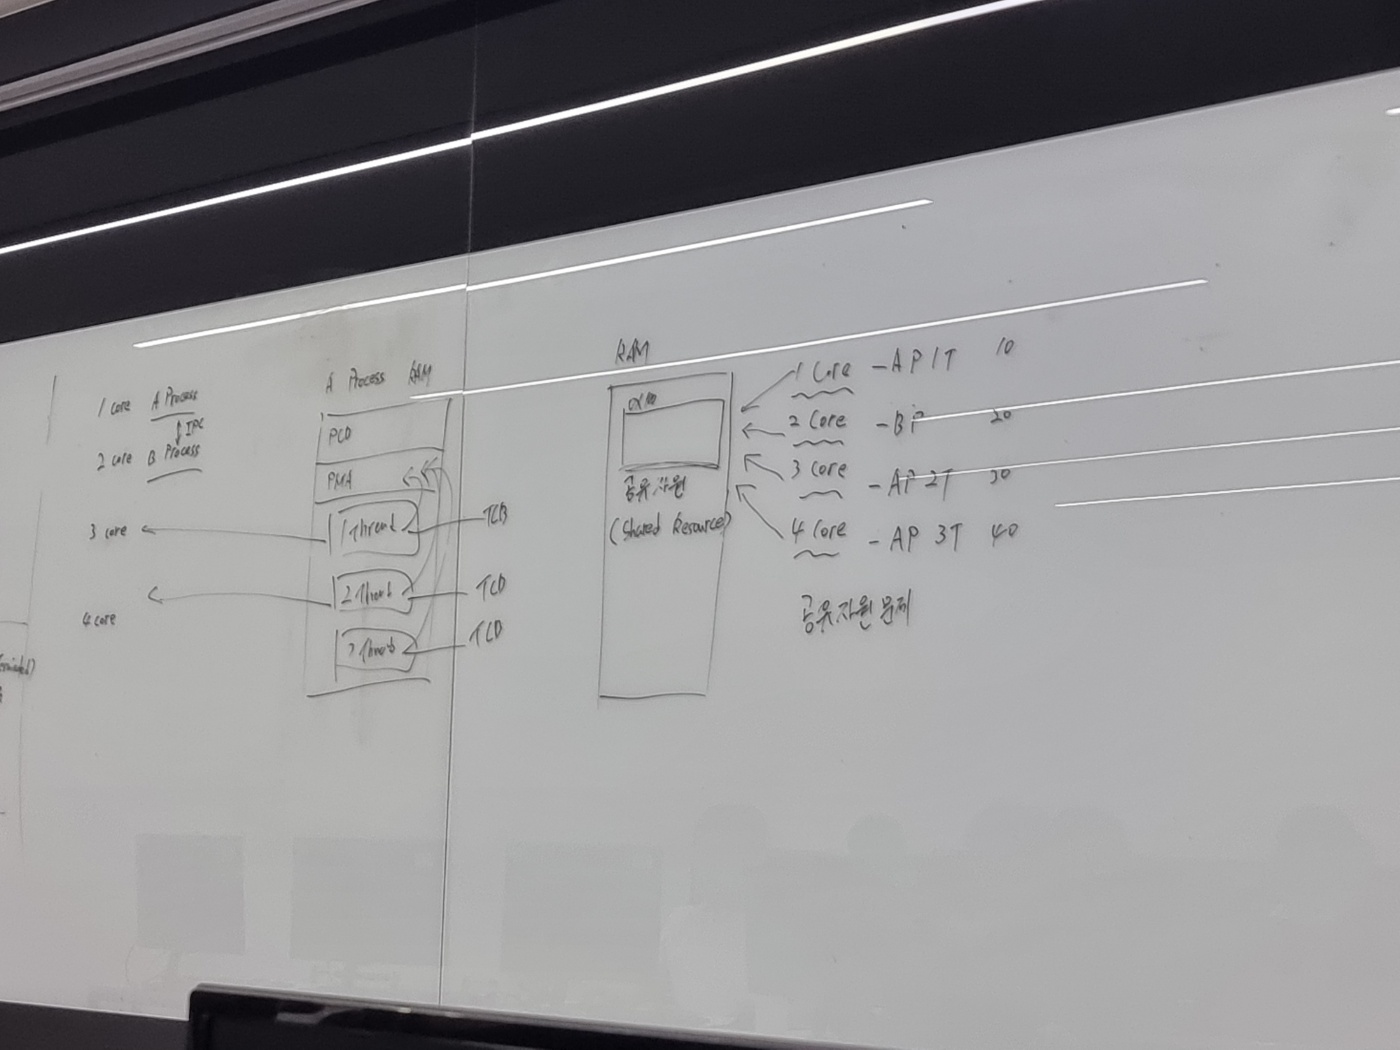 1 core A Process
IPC
2 core B Process
3 core
4 core
A Process RAM
PCD
PMA
1 Thread
TCB
2 Thread
TCD
Thread
TCD
RAM
공유 자원
(Shared Resource)
1 Core - AP 1T 10
2 Core - BP 20
3 Core - AP 2T 30
4 Core - AP 3T 40
공유자원 문제